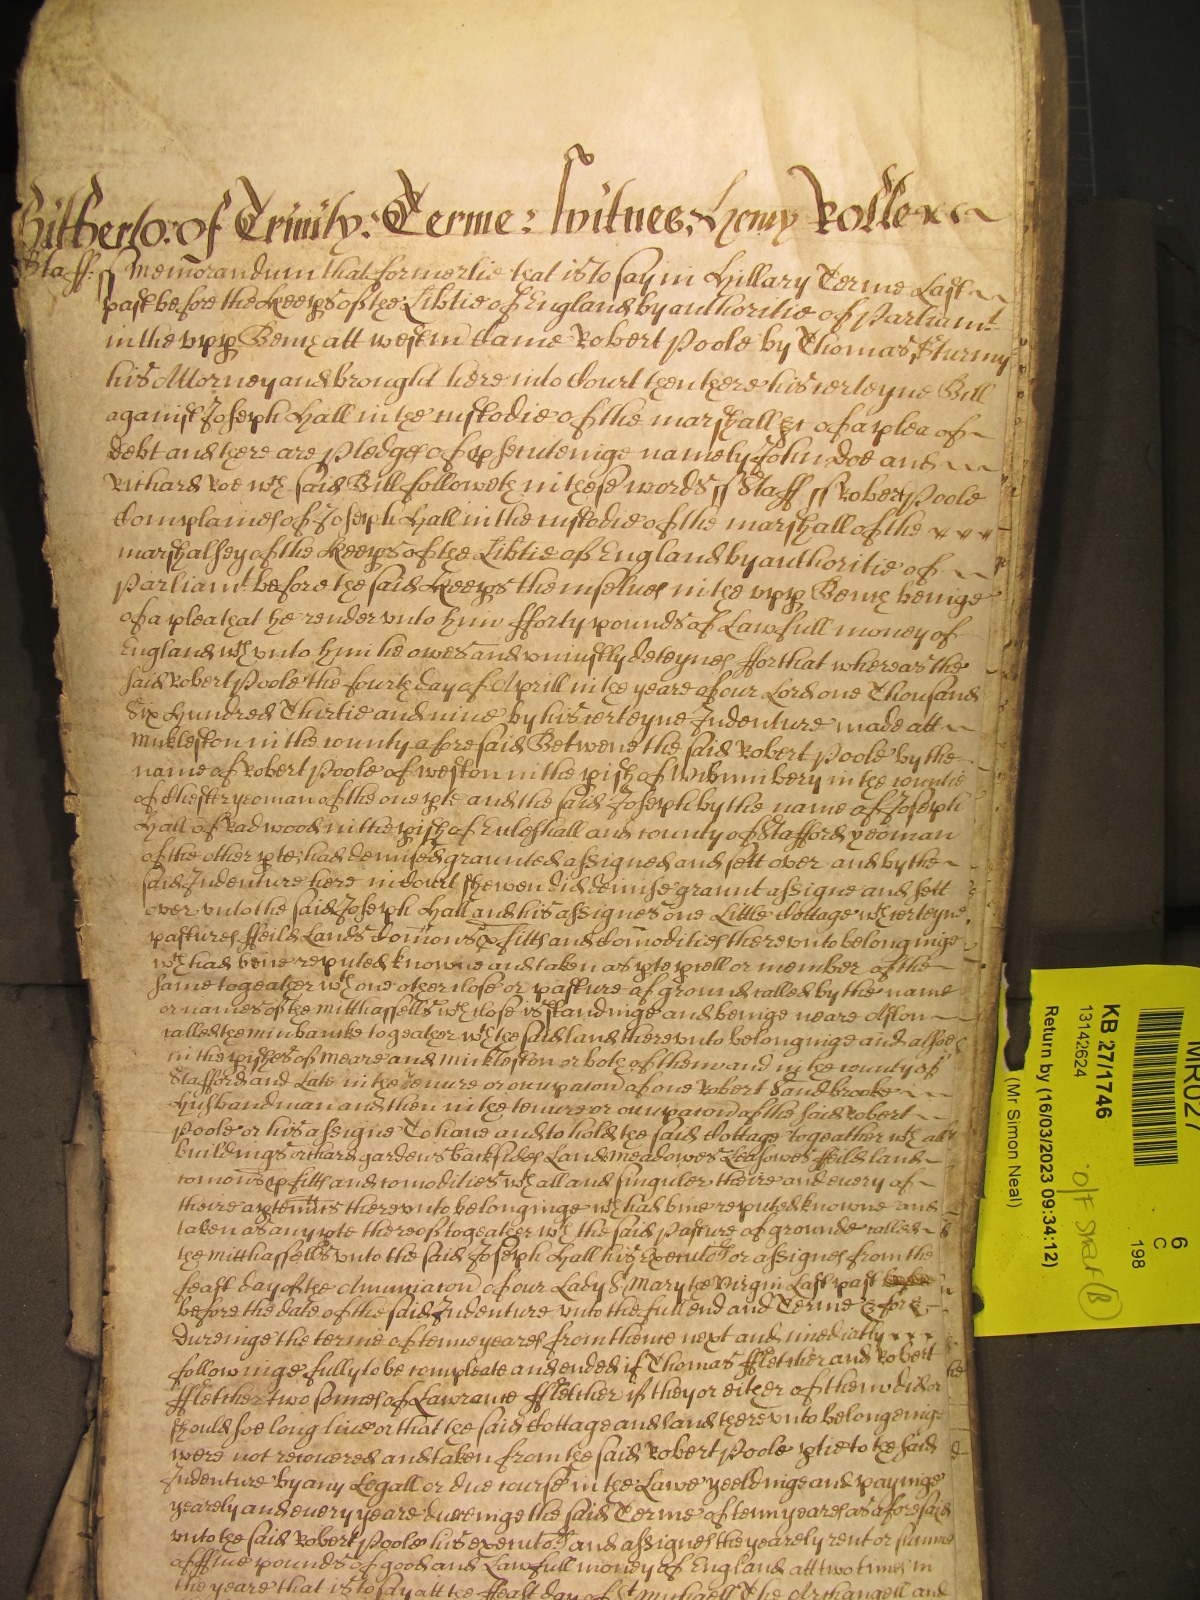 Hitherto: of Trinity: Terme: Witnes: Henry Rolle
Staff: ss Memorandum that formerlie that is to say in Hillary Terme Last
past before the Keeps of the Libtie of England by authoritie of Parliamt
in the vpp Bench att westm Came Robert Poole by Thomas Sturmy
his Attorney and brought here into Court then there his certeyne Bill
against Joseph Hall in the custodie of the marshall &c of a plea of
debt and there are pledges of psecuteinge namely John Doe and
Richard Roe wch said Bill followeth in these words ss Staff ss Robert Poole
Complaines of Joseph Hall in the custodie of the marshall of the
marshalsey of the Keeps of the Libtie of England by authoritie of
Parliamt before the said Keeps themselues in the vpp Bench beinge
of a plea that he render vnto him fforty pounds of Lawfull money of
England wch vnto him he owes and vniustly deteynes ffor that whereas the
said Robert Poole the fourth day of Aprill in the yeare of our Lord one Thousand
Six Hundred Thirtie and nine by his certeyne Indenture made att
Muckleston in the county aforesaid Betwene the said Robert Poole by the
name of Robert Poole of weston in the pish of Wibunbery in the countie
of Chester yeoman of the one pte and the said Joseph by the name of Joseph
Hall of Radwood in the pish of Eccleshall and county of Stafford yeoman
of the other pte had demised graunted assigned and sett over and by the
said Indenture here in Court shewen did demise graunt assigne and sett
over vnto the said Joseph Hall and his assignes one Little Cottage wth certeyne
pastures ffeild Lands Comons pfitts and Comodities therevnto belonginge
wch had beine reputed knowne and taken as pte pcell or member of the
same togeather wth one other close or pasture of ground called by the name
or names of the Mitthassells wch close is standinge and beinge neare Aston
called the Minbanke togeather wth the said land therevnto belonginge and alsoe
in the pishes of Meare and Muckleston or both of them and in the county of
Stafford and Late in the tenure or occupacon of one Robert Sandbrooke
Husbandman and then in the tenure or occupacon of the said Robert
Poole or his assigne To haue and to hold the said Cottage togeather wth all
buildings orchard gardens backsides Land meadowes Leasowes ffeild land
comons pfitts and comodities wth all and singuler theire and euery of
theire apptenncs therevnto belonginge wch had bine reputed knowne and
taken as any pte thereof togeather wth the said Pasture of grounde called
the Mitthassells vnto the said Joseph Hall his Executors or assignes from the
feast day of the Anunciacon of our Lady St Mary the Virgin Last past
before the date of the said Indenture vnto the full end and Terme & for &
Dureinge the terme of tenne yeares from thence next and imediatly
followinge fully to be compleate and ended if Thomas ffletcher and Robert
ffletcher two sonnes of Lawrance ffletcher if they or either of them did or
should soe long liue or that the said Cottage and land therevnto belongeing
were not recouered and taken from the said Robert Poole ptie to the said
Indenture by any Legall or due course in the Lawe yeeldinge and payinge
yearely and euery yeare dureinge the said Terme of tenn yeares as aforesaid
vnto the said Robert Poole his executors and assignes the yearely rent or summe
of ffiue pounds of good and Lawfull money of England att two times in
the yeare that is to say att the ffeast day of St Michaell The Archangell and
MR027
KB 27/1746
13142624
Return by (16/03/2023 09:34:12)
(Mr Simon Neal)
6
C
198
Off Shelf (B)